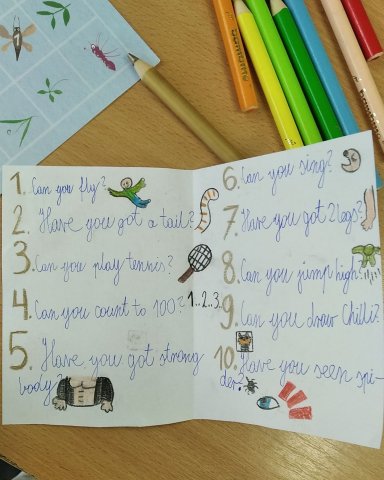 1. Can you fly?
2. Have you got a tail?
3. Can you play tennis?
4. Can you count to 100? 1..2.3.
5. Have you got strong
body?
6. Can you sing?
7. Have you got 2 legs?
8. Can you jump high?
9. Can you draw Chilli?
10. Have you seen spi-
der?